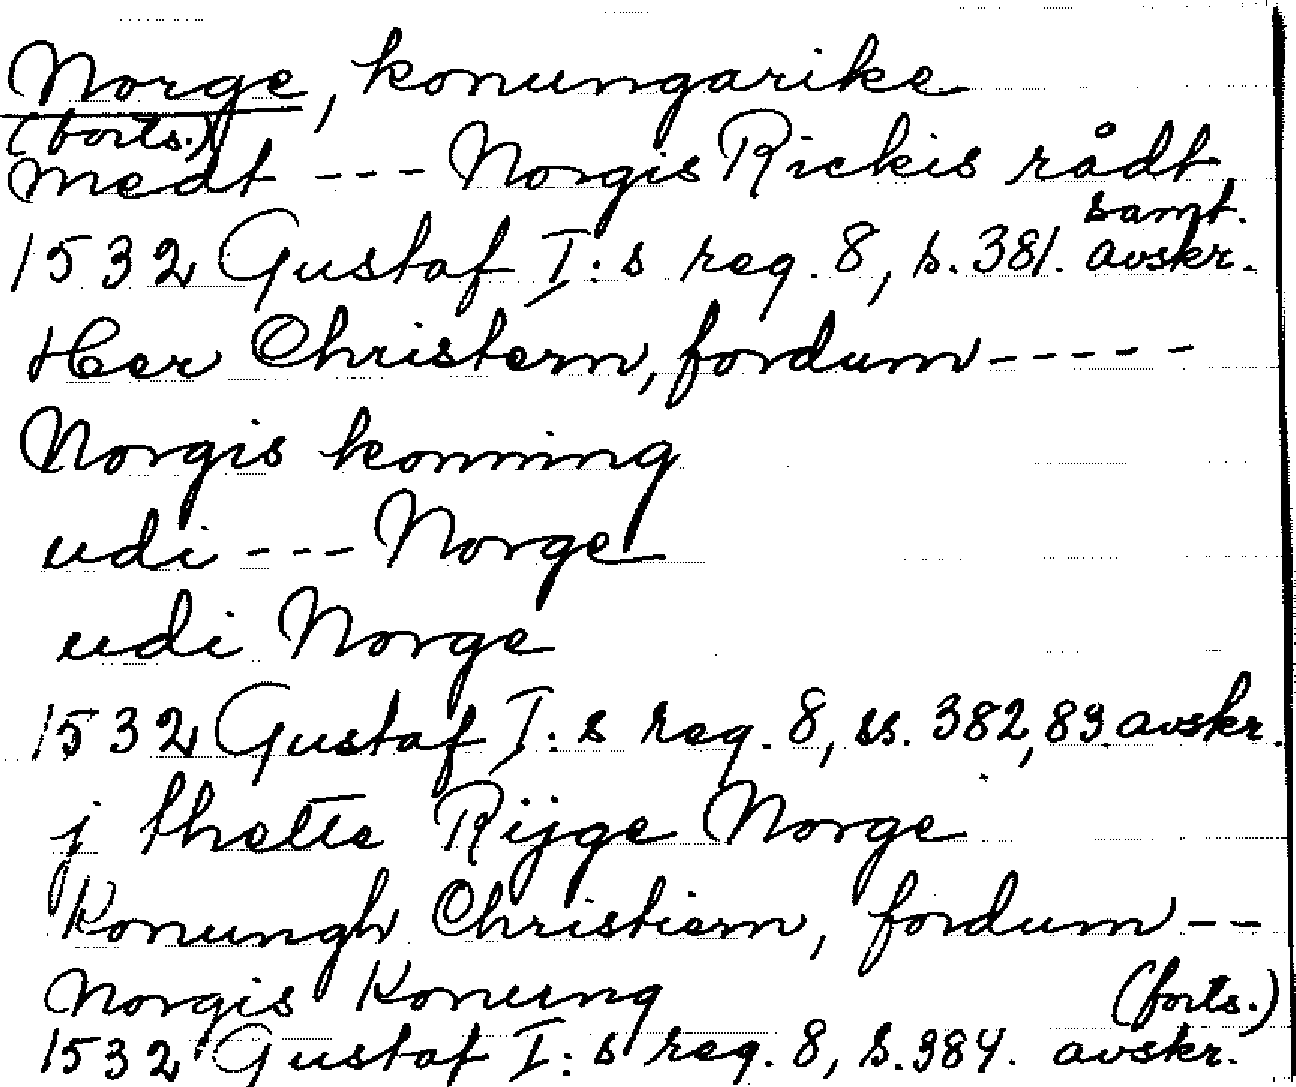 Norge, konungarike
(forts.)
Medt --- Norgis Rickis rådt
samt.
1532 Gustaf I:s reg. 8, s. 381. avskr.
Her Christern, fordum -----
Norgis konning
udi --- Norge
udi Norge
1532 Gustaf I:s reg. 8, ss. 382, 83. avskr.
j thette Rijge Norge
Konungh Christiern, fordum --
Norgis Konung
(forts.)
1532 Gustaf I:s reg. 8, s. 384. avskr.